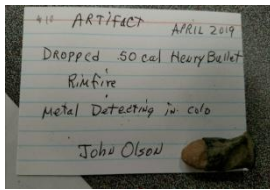 410 ARTifACT
APRIL 2019
DROPPED .50 cal Henry Bullet
Rimfire
Metal Detecting in colo
John Olson